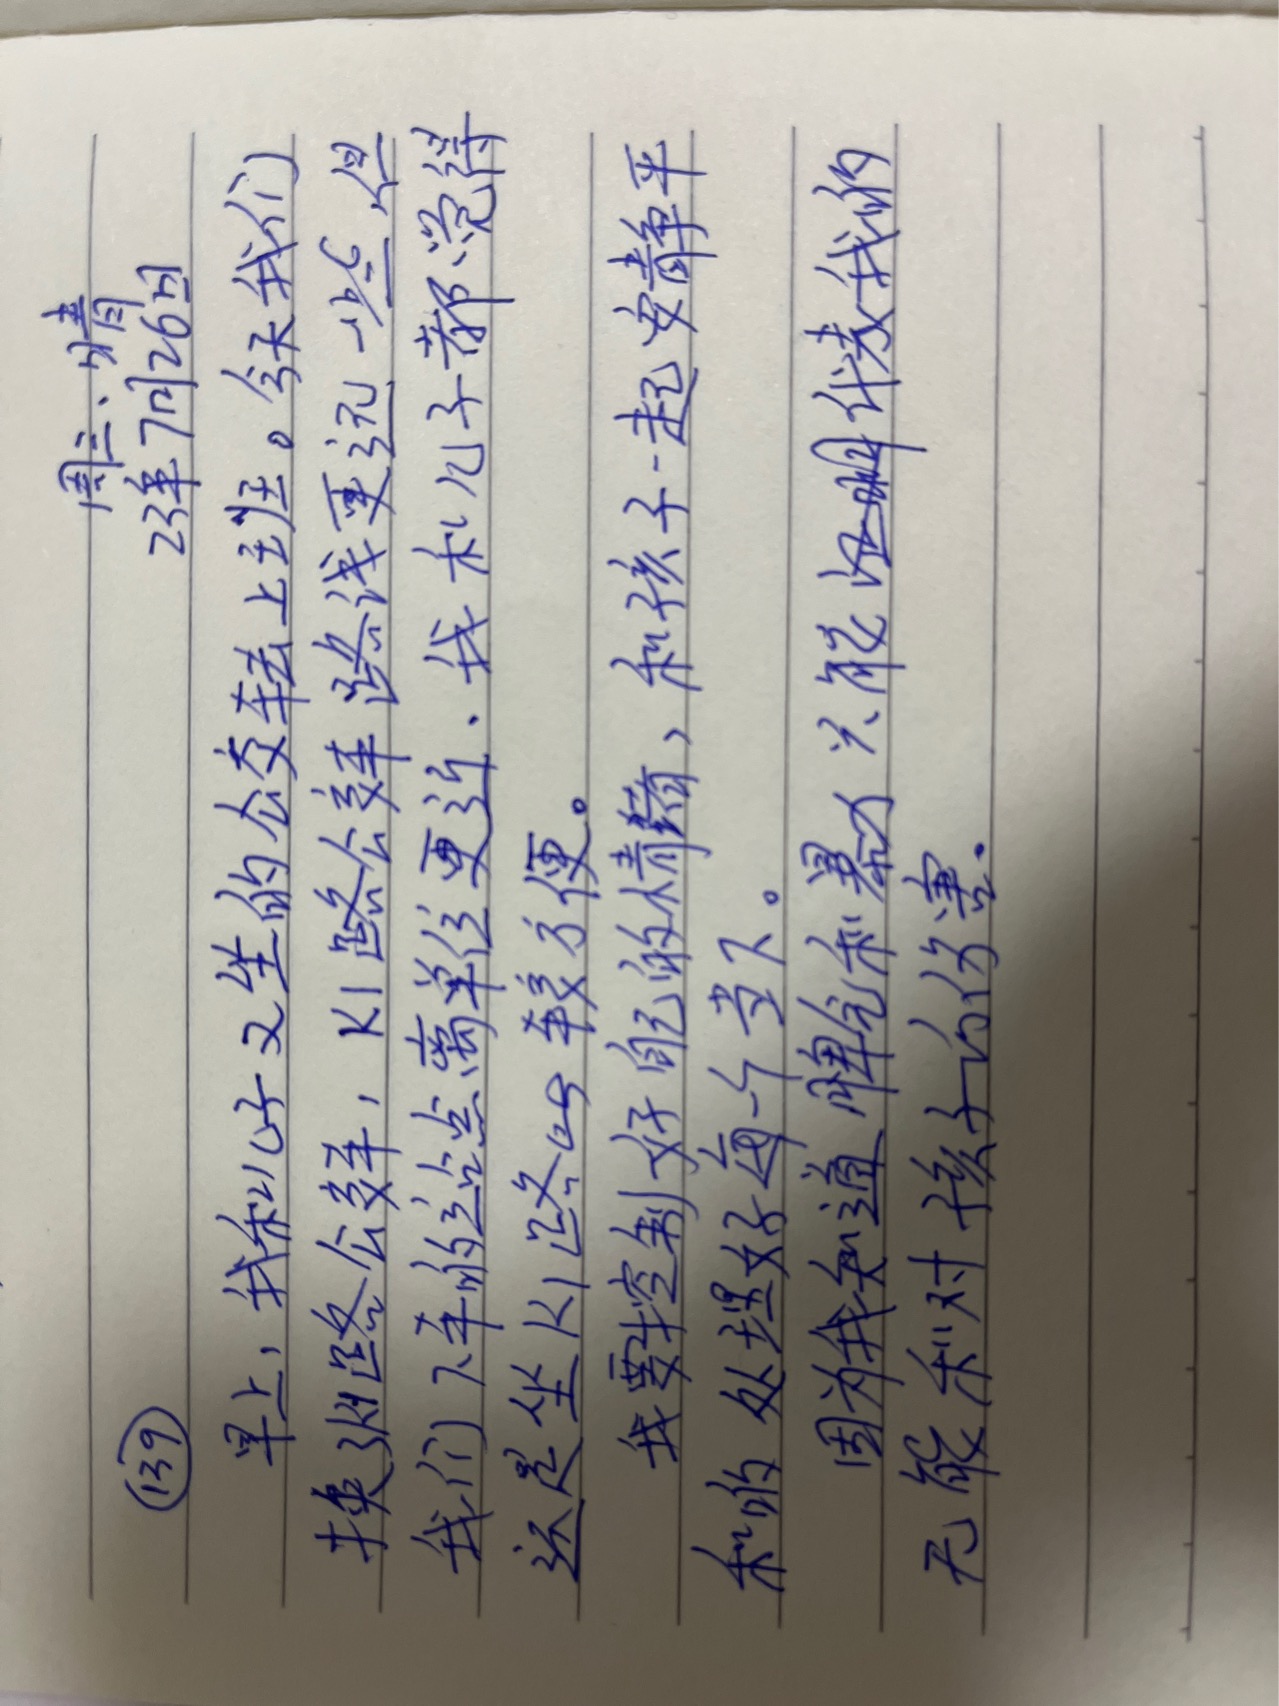 周三、晴
139 23年7月26日
早上，我和儿子又坐的公交车去上班。今天我们
换3K路公交车，K1路公交车路线更远一些，但
我们下车的站点离单位更近．我和儿子都觉得
还是坐K1路 较方便。
我要控制好自己的情绪，和孩子一起安静平
和的处理好每一个当下。
因为我知道 和暴力只能证明代表我的
无能和对孩子的伤害．